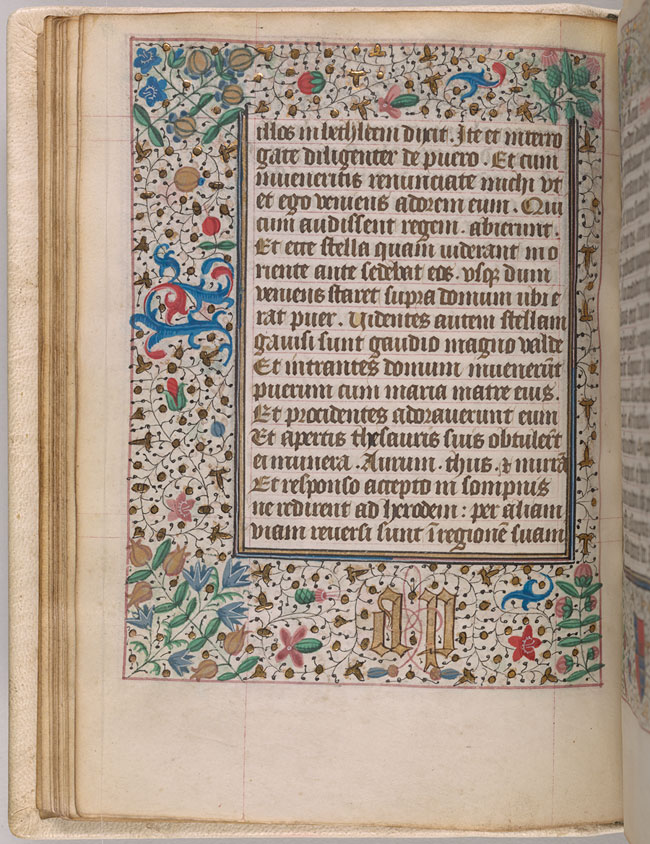 illos in bethleem dixit. Ite et interro
gate diligenter de puero. Et cum
inveneritis renunciate michi vt
et ego veniens adorem eum. Qui
cum audissent regem. abierunt.
Et ecce stella quam viderant in o
riente ante sedebat eos. vsq dum
veniens staret supra domum ubi e
rat puer. Videntes autem stellam
gavisi sunt gaudio magno valde
Et intrantes domum invenerūt
puerum cum maria matre eius.
Et procidentes adoraverunt eum
Et apertis thesauris suis obtulerūt
ei munera. Aurum. thus. et mirrā
Et responso accepto in sompnis
ne redirent ad herodem: per aliam
viam reversi sunt ī regionē suam